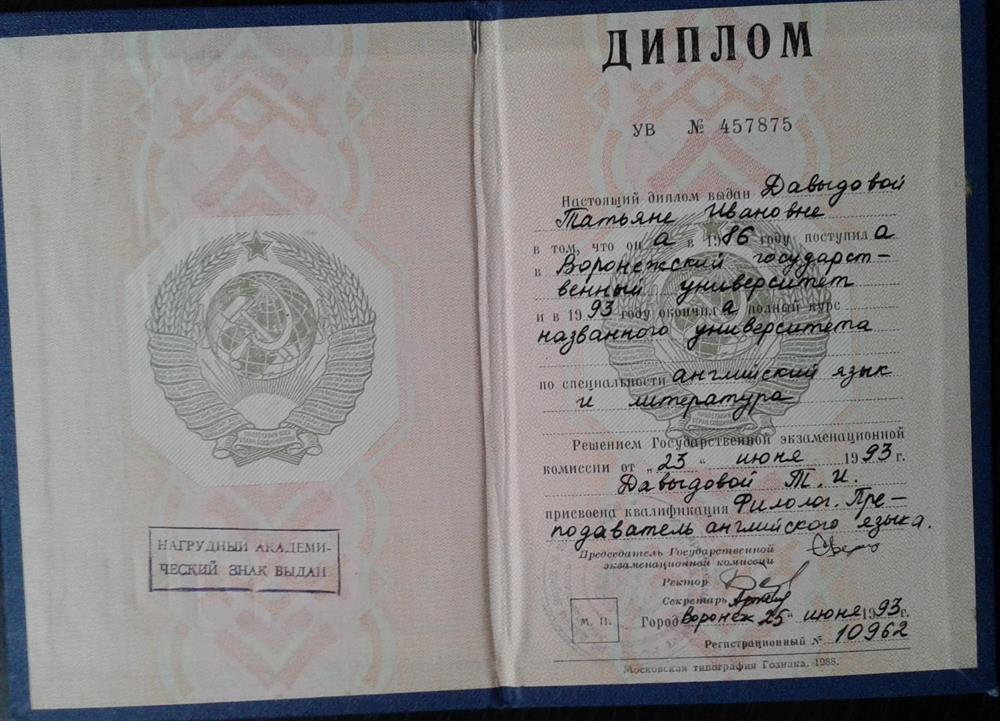 НАГРУДНЫЙ АКАДЕМИ-
ЧЕСКИЙ ЗНАК ВЫДАН
ДИПЛОМ
УВ № 457875
Настоящий диплом выдан Давыдовой
Татьяне Ивановне
в том, что он а в 1986 году поступил а
в Воронежский государст-
венный университет
и в 1993 году окончил а полный курс
названного университета
по специальности английский язык
и литература
Решением Государственной экзаменационной
комиссии от „23“ июня 1993 г.
Давыдовой Т. И.
присвоена квалификация Филолог. Пре-
подаватель английского языка.
Председатель Государственной
экзаменационной комиссии
Ректор
Секретарь
М. П.
Город Воронеж 25“ июня 1993 г.
Регистрационный № 10962
Московская типография Гознака. 1988.